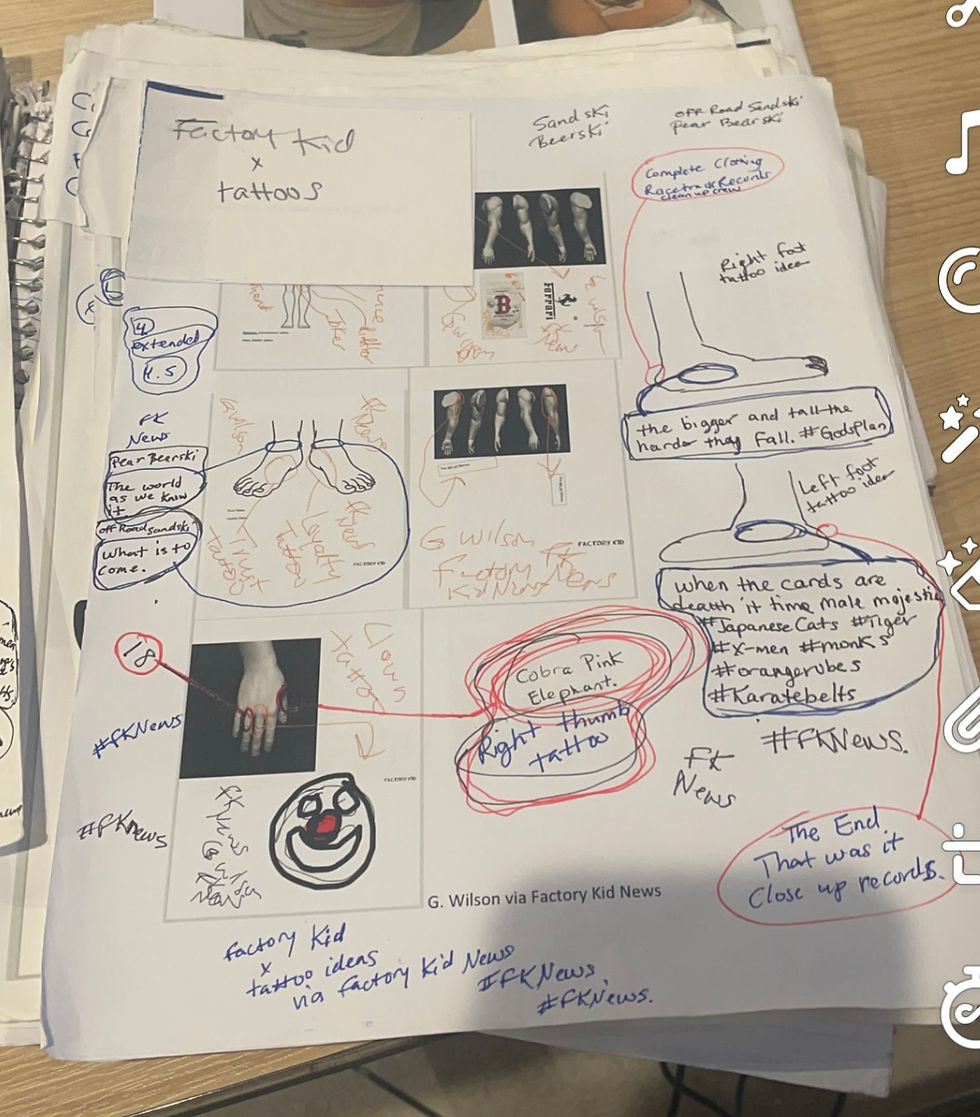 Factory Kid
x
tattoos
Sandski
Beerski
OFF Road Sandski
Pear Bearski
Complete Clothing
Racetrack Records
clean up crew
Right foot
tattoo idea
B
Ferrari
4
extended
4.5
FK
News
Pear Beerski
The world
as we know
it.
off Road sandski
What is to
come.
G wilson
fknews
Trust
tattoo
Loyalty
Tattoo
FACTORY KID
G Wilson
Factory
Kid News
FK
News
FACTORY KID
the bigger and tall the
harder they Fall. #GodsPlan
Left foot
tattoo idea
when the cards are
death it time male mojestic
#JapaneseCats #Tiger
#X-men #monks
#orangerobes
#Karatebelts
#FKNews.
18
Clown
tattoo
Cobra Pink
Elephant.
Right thumb
tattoo
#FKNews
#FKnews
FACTORY KID
fknews
FK
News
The End.
That was it
Close up records.
G. Wilson via Factory Kid News
factory Kid
x
tattoo ideas
via factory Kid News
#FKNews
#FKNews.